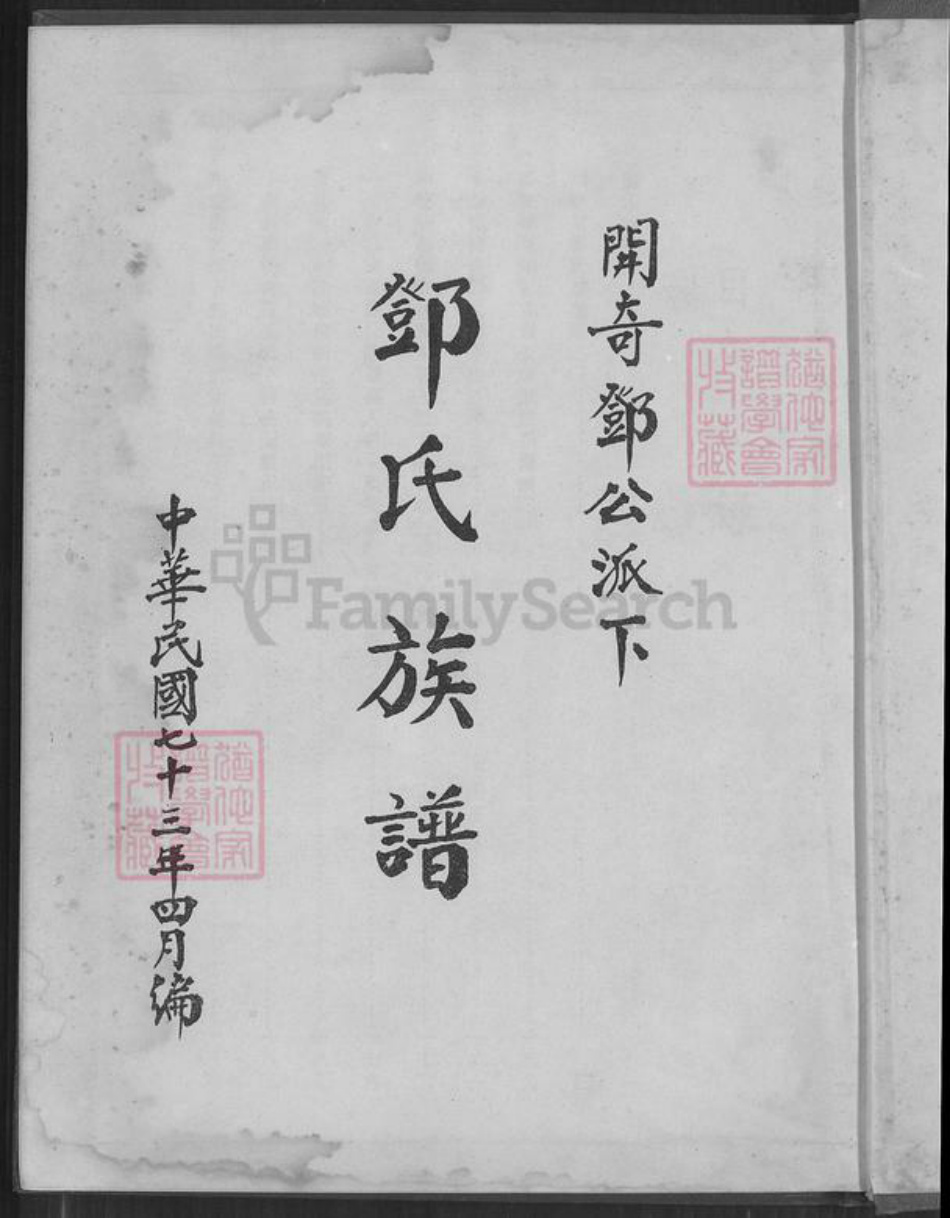 開奇鄧公派下
鄧氏族譜
中華民國七十三年四月編
譜學會
收藏
FamilySearch